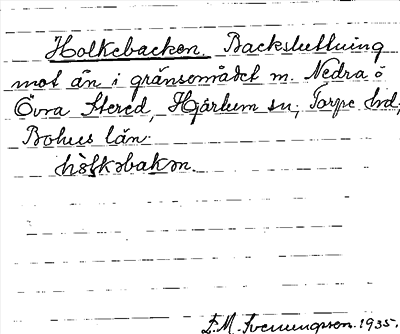 Holkebacken. Backsluttning
mot ån i gränsområdet m. Nedra ö
Övra Stered, Hjärtum sn; Torpe hd;
Bohus län.
hòlkəbakən.
E.M. Svenungsson. 1935.